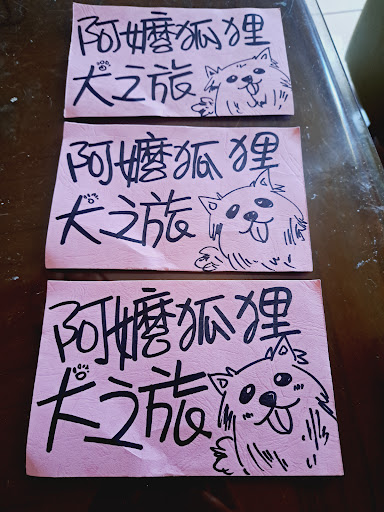 阿嬤狐狸
犬之旅
阿嬤狐狸
犬之旅
阿嬤狐狸
犬之旅